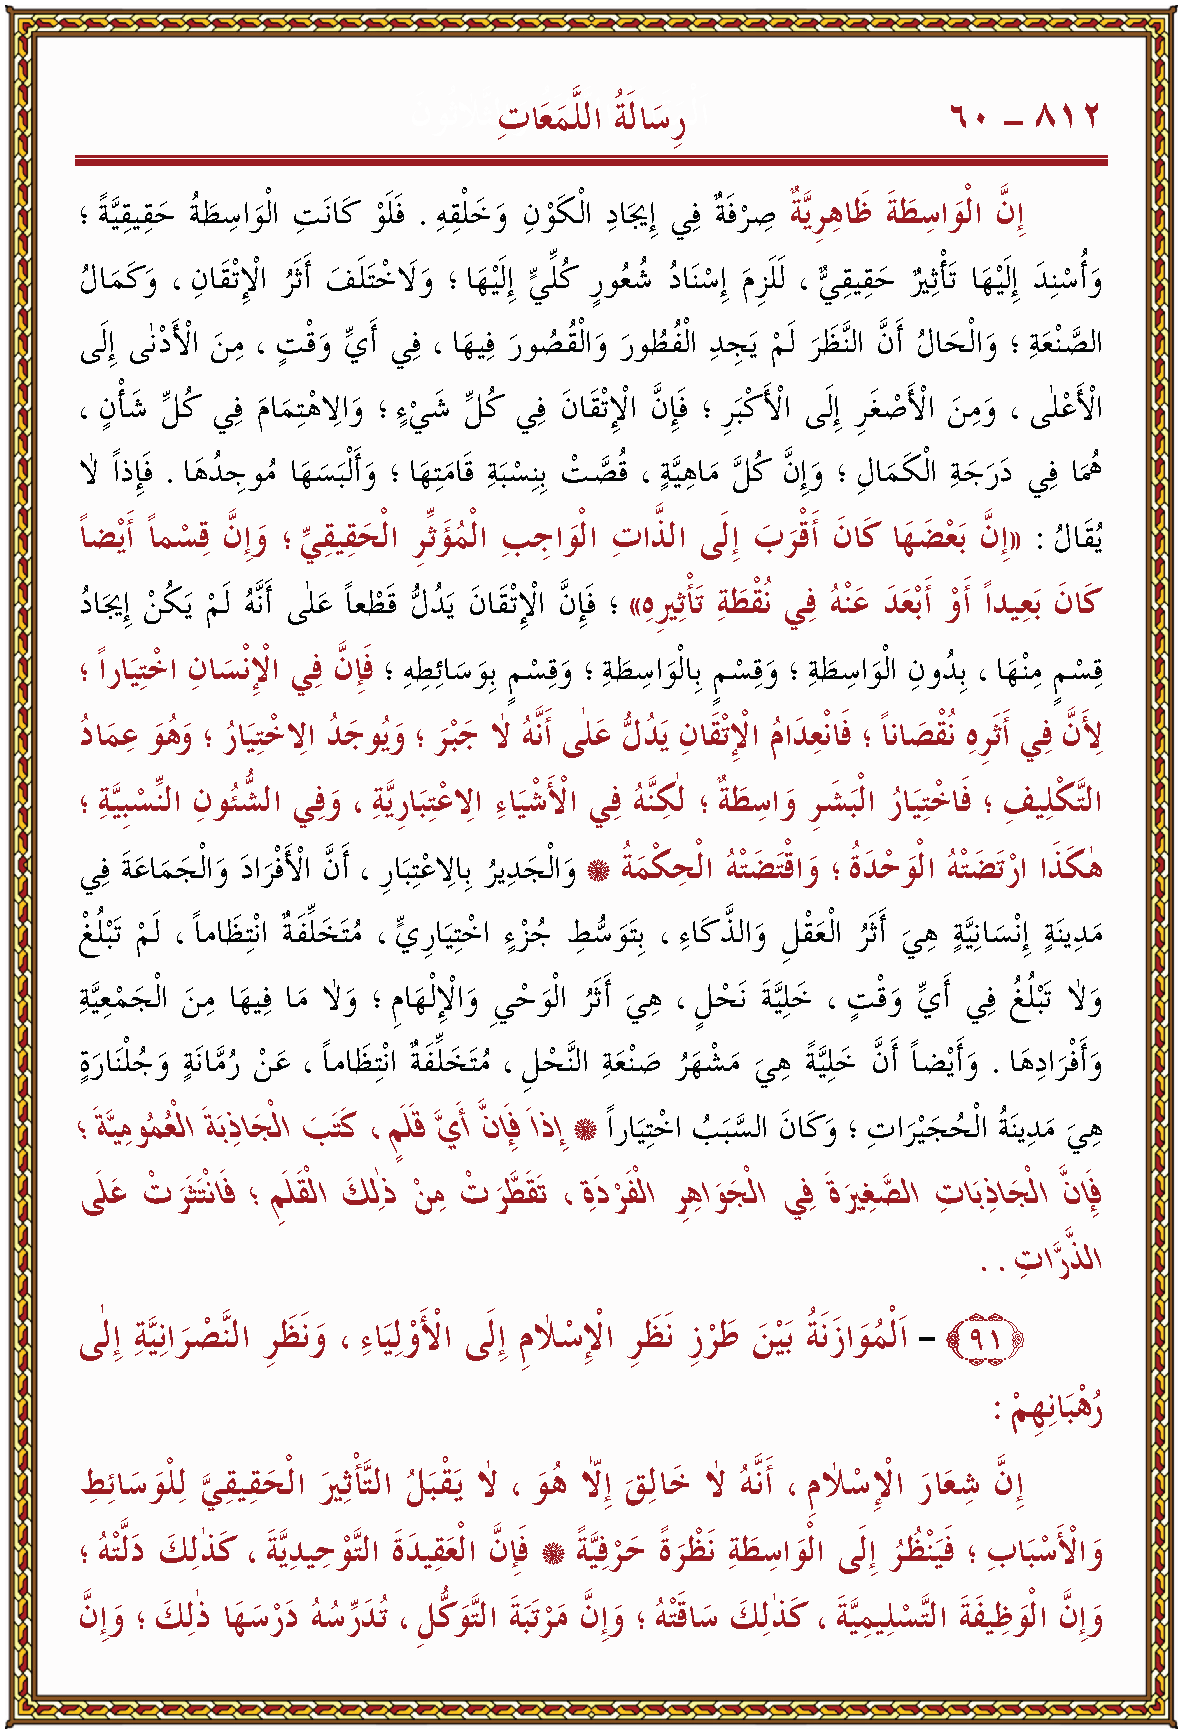 ٨١٢ – ٦٠ رِسَالَةُ اللَّمَعَاتِ
إِنَّ الْوَاسِطَةَ ظَاهِرِيَّةٌ صِرْفَةٌ فِي إِيجَادِ الْكَوْنِ وَخَلْقِهِ . فَلَوْ كَانَتِ الْوَاسِطَةُ حَقِيقِيَّةً ؛
وَأُسْنِدَ إِلَيْهَا تَأْثِيرٌ حَقِيقِيٌّ ، لَلَزِمَ إِسْنَادُ شُعُورٍ كُلِّيٍّ إِلَيْهَا ؛ وَلَاخْتَلَفَ أَثَرُ الْإِتْقَانِ ، وَكَمَالُ
الصَّنْعَةِ ؛ وَالْحَالُ أَنَّ النَّظَرَ لَمْ يَجِدِ الْفُطُورَ وَالْقُصُورَ فِيهَا ، فِي أَيِّ وَقْتٍ ، مِنَ الْأَدْنٰى إِلَى
الْأَعْلٰى ، وَمِنَ الْأَصْغَرِ إِلَى الْأَكْبَرِ ؛ فَإِنَّ الْإِتْقَانَ فِي كُلِّ شَيْءٍ ؛ وَالِاهْتِمَامَ فِي كُلِّ شَأْنٍ ،
هُمَا فِي دَرَجَةِ الْكَمَالِ ؛ وَإِنَّ كُلَّ مَاهِيَّةٍ ، قُصَّتْ بِنِسْبَةِ قَامَتِهَا ؛ وَأَلْبَسَهَا مُوجِدُهَا . فَإِذاً لَا
يُقَالُ : «إِنَّ بَعْضَهَا كَانَ أَقْرَبَ إِلَى الذَّاتِ الْوَاجِبِ الْمُؤَثِّرِ الْحَقِيقِيِّ ؛ وَإِنَّ قِسْماً أَيْضاً
كَانَ بَعِيداً أَوْ أَبْعَدَ عَنْهُ فِي نُقْطَةِ تَأْثِيرِهِ» ؛ فَإِنَّ الْإِتْقَانَ يَدُلُّ قَطْعاً عَلٰى أَنَّهُ لَمْ يَكُنْ إِيجَادُ
قِسْمٍ مِنْهَا ، بِدُونِ الْوَاسِطَةِ ؛ وَقِسْمٍ بِالْوَاسِطَةِ ؛ وَقِسْمٍ بِوَسَائِطِهِ ؛ فَإِنَّ فِي الْإِنْسَانِ اخْتِيَاراً ؛
لِأَنَّ فِي أَثَرِهِ نُقْصَاناً ؛ فَانْعِدَامُ الْإِتْقَانِ يَدُلُّ عَلٰى أَنَّهُ لَا جَبْرَ ؛ وَيُوجَدُ الِاخْتِيَارُ ؛ وَهُوَ عِمَادُ
التَّكْلِيفِ ؛ فَاخْتِيَارُ الْبَشَرِ وَاسِطَةٌ ؛ لٰكِنَّهُ فِي الْأَشْيَاءِ الِاعْتِبَارِيَّةِ ، وَفِي الشُّئُونِ النِّسْبِيَّةِ ؛
هٰكَذَا ارْتَضَتْهُ الْوَحْدَةُ ؛ وَاقْتَضَتْهُ الْحِكْمَةُ ۞ وَالْجَدِيرُ بِالِاعْتِبَارِ ، أَنَّ الْأَفْرَادَ وَالْجَمَاعَةَ فِي
مَدِينَةٍ إِنْسَانِيَّةٍ هِيَ أَثَرُ الْعَقْلِ وَالذَّكَاءِ ، بِتَوَسُّطِ جُزْءٍ اخْتِيَارِيٍّ ، مُتَخَلِّفَةٌ انْتِظَاماً ، لَمْ تَبْلُغْ
وَلَا تَبْلُغُ فِي أَيِّ وَقْتٍ ، خَلِيَّةَ نَحْلٍ ، هِيَ أَثَرُ الْوَحْيِ وَالْإِلْهَامِ ؛ وَلَا مَا فِيهَا مِنَ الْجَمْعِيَّةِ
وَأَفْرَادِهَا . وَأَيْضاً أَنَّ خَلِيَّةً هِيَ مَشْهَرُ صَنْعَةِ النَّحْلِ ، مُتَخَلِّفَةٌ انْتِظَاماً ، عَنْ رُمَّانَةٍ وَجُلْنَارَةٍ
هِيَ مَدِينَةُ الْحُجَيْرَاتِ ؛ وَكَانَ السَّبَبُ اخْتِيَاراً ۞ إِذاً فَإِنَّ أَيَّ قَلَمٍ ، كَتَبَ الْجَاذِبَةَ الْعُمُومِيَّةَ ؛
فَإِنَّ الْجَاذِبَاتِ الصَّغِيرَةَ فِي الْجَوَاهِرِ الْفَرْدَةِ ، تَقَطَّرَتْ مِنْ ذٰلِكَ الْقَلَمِ ؛ فَانْتَثَرَتْ عَلَى
الذَّرَّاتِ . .
﴿١٩﴾ – اَلْمُوَازَنَةُ بَيْنَ طَرْزِ نَظَرِ الْإِسْلَامِ إِلَى الْأَوْلِيَاءِ ، وَنَظَرِ النَّصْرَانِيَّةِ إِلٰى
رُهْبَانِهِمْ :
إِنَّ شِعَارَ الْإِسْلَامِ ، أَنَّهُ لَا خَالِقَ إِلَّا هُوَ ، لَا يَقْبَلُ التَّأْثِيرَ الْحَقِيقِيَّ لِلْوَسَائِطِ
وَالْأَسْبَابِ ؛ فَيَنْظُرُ إِلَى الْوَاسِطَةِ نَظْرَةً حَرْفِيَّةً ۞ فَإِنَّ الْعَقِيدَةَ التَّوْحِيدِيَّةَ ، كَذٰلِكَ دَلَّتْهُ ؛
وَإِنَّ الْوَظِيفَةَ التَّسْلِيمِيَّةَ ، كَذٰلِكَ سَاقَتْهُ ؛ وَإِنَّ مَرْتَبَةَ التَّوَكُّلِ ، تُدَرِّسُهُ دَرْسَهَا ذٰلِكَ ؛ وَإِنَّ